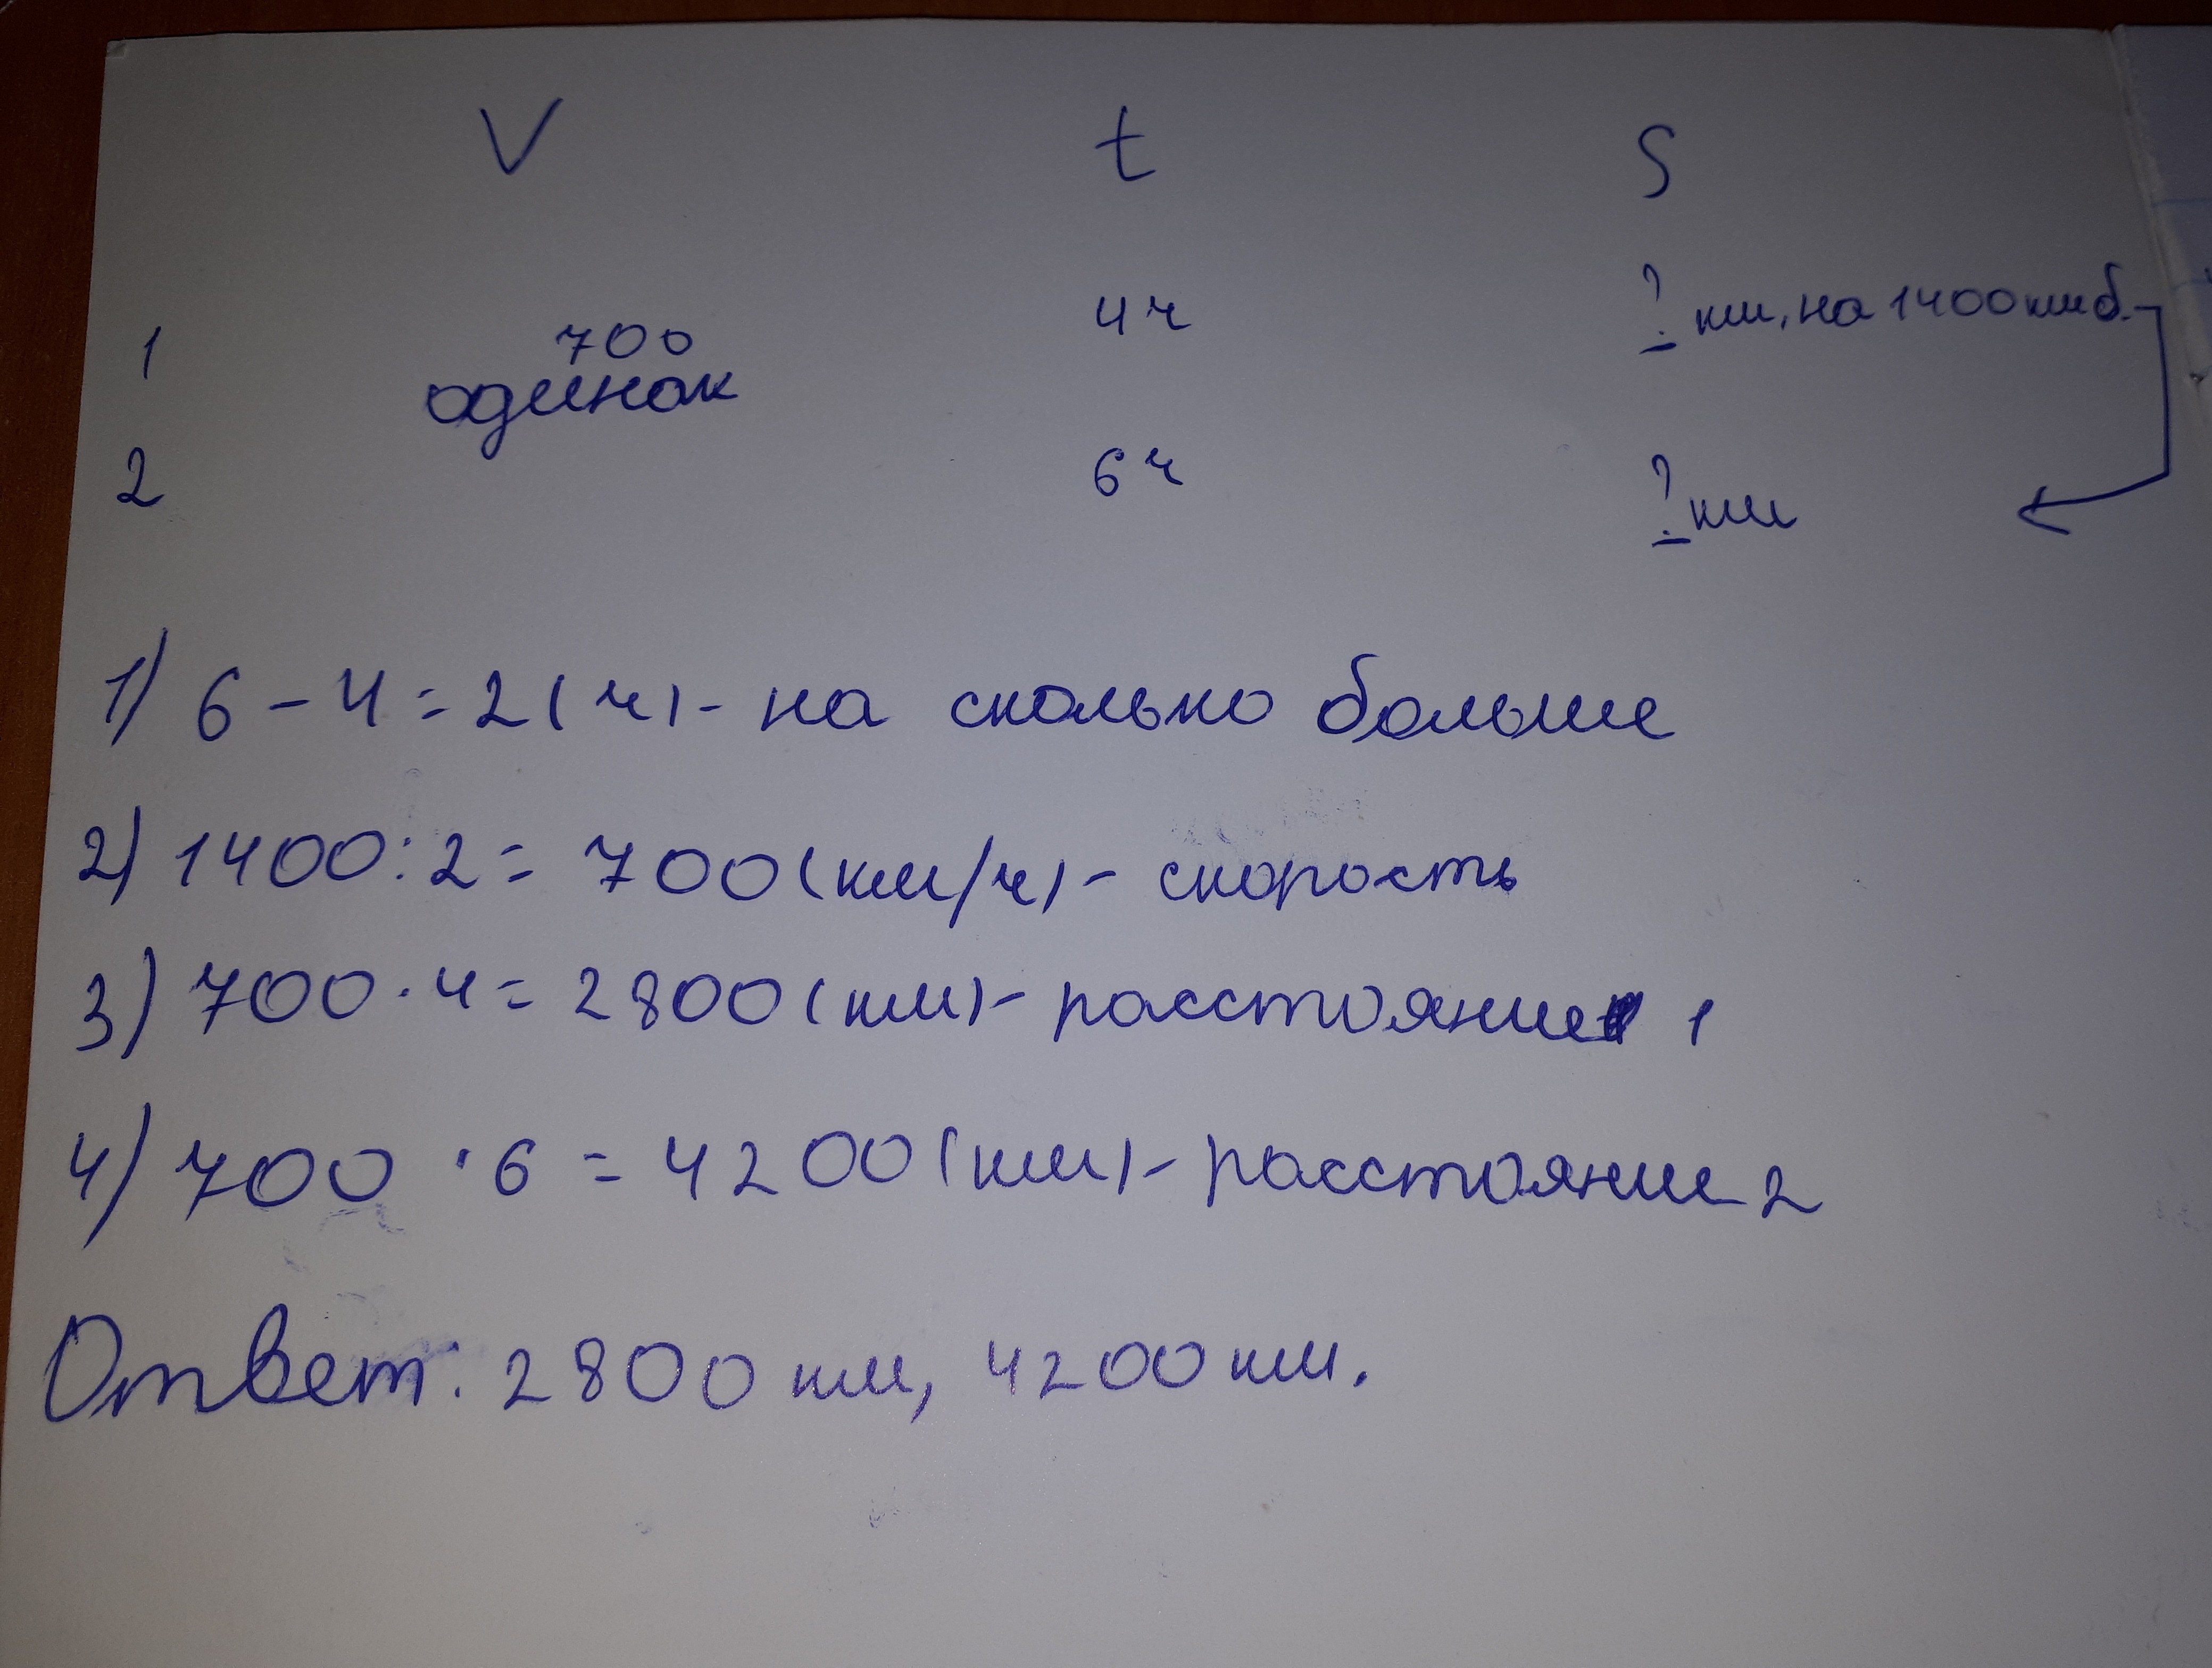 V t S
1 700 4ч ? км, на 1400 км б.
одинак
2 6ч ? км
1) 6 - 4 = 2 (ч) - на сколько больше
2) 1400 : 2 = 700 (км/ч) - скорость
3) 700 · 4 = 2800 (км) - расстояние 1
4) 700 · 6 = 4200 (км) - расстояние 2
Ответ: 2800 км, 4200 км.